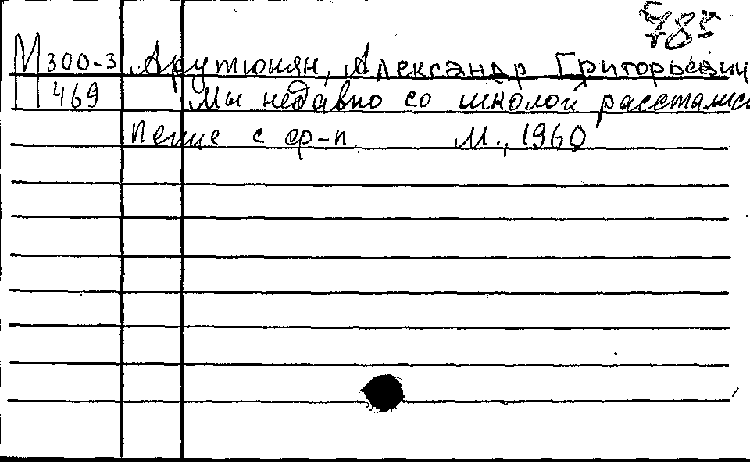 785
М 300-3 Арутюнян, Александр Григорьевич
469 Мы недавно со школой расстались
Пение с ф-п М., 1960